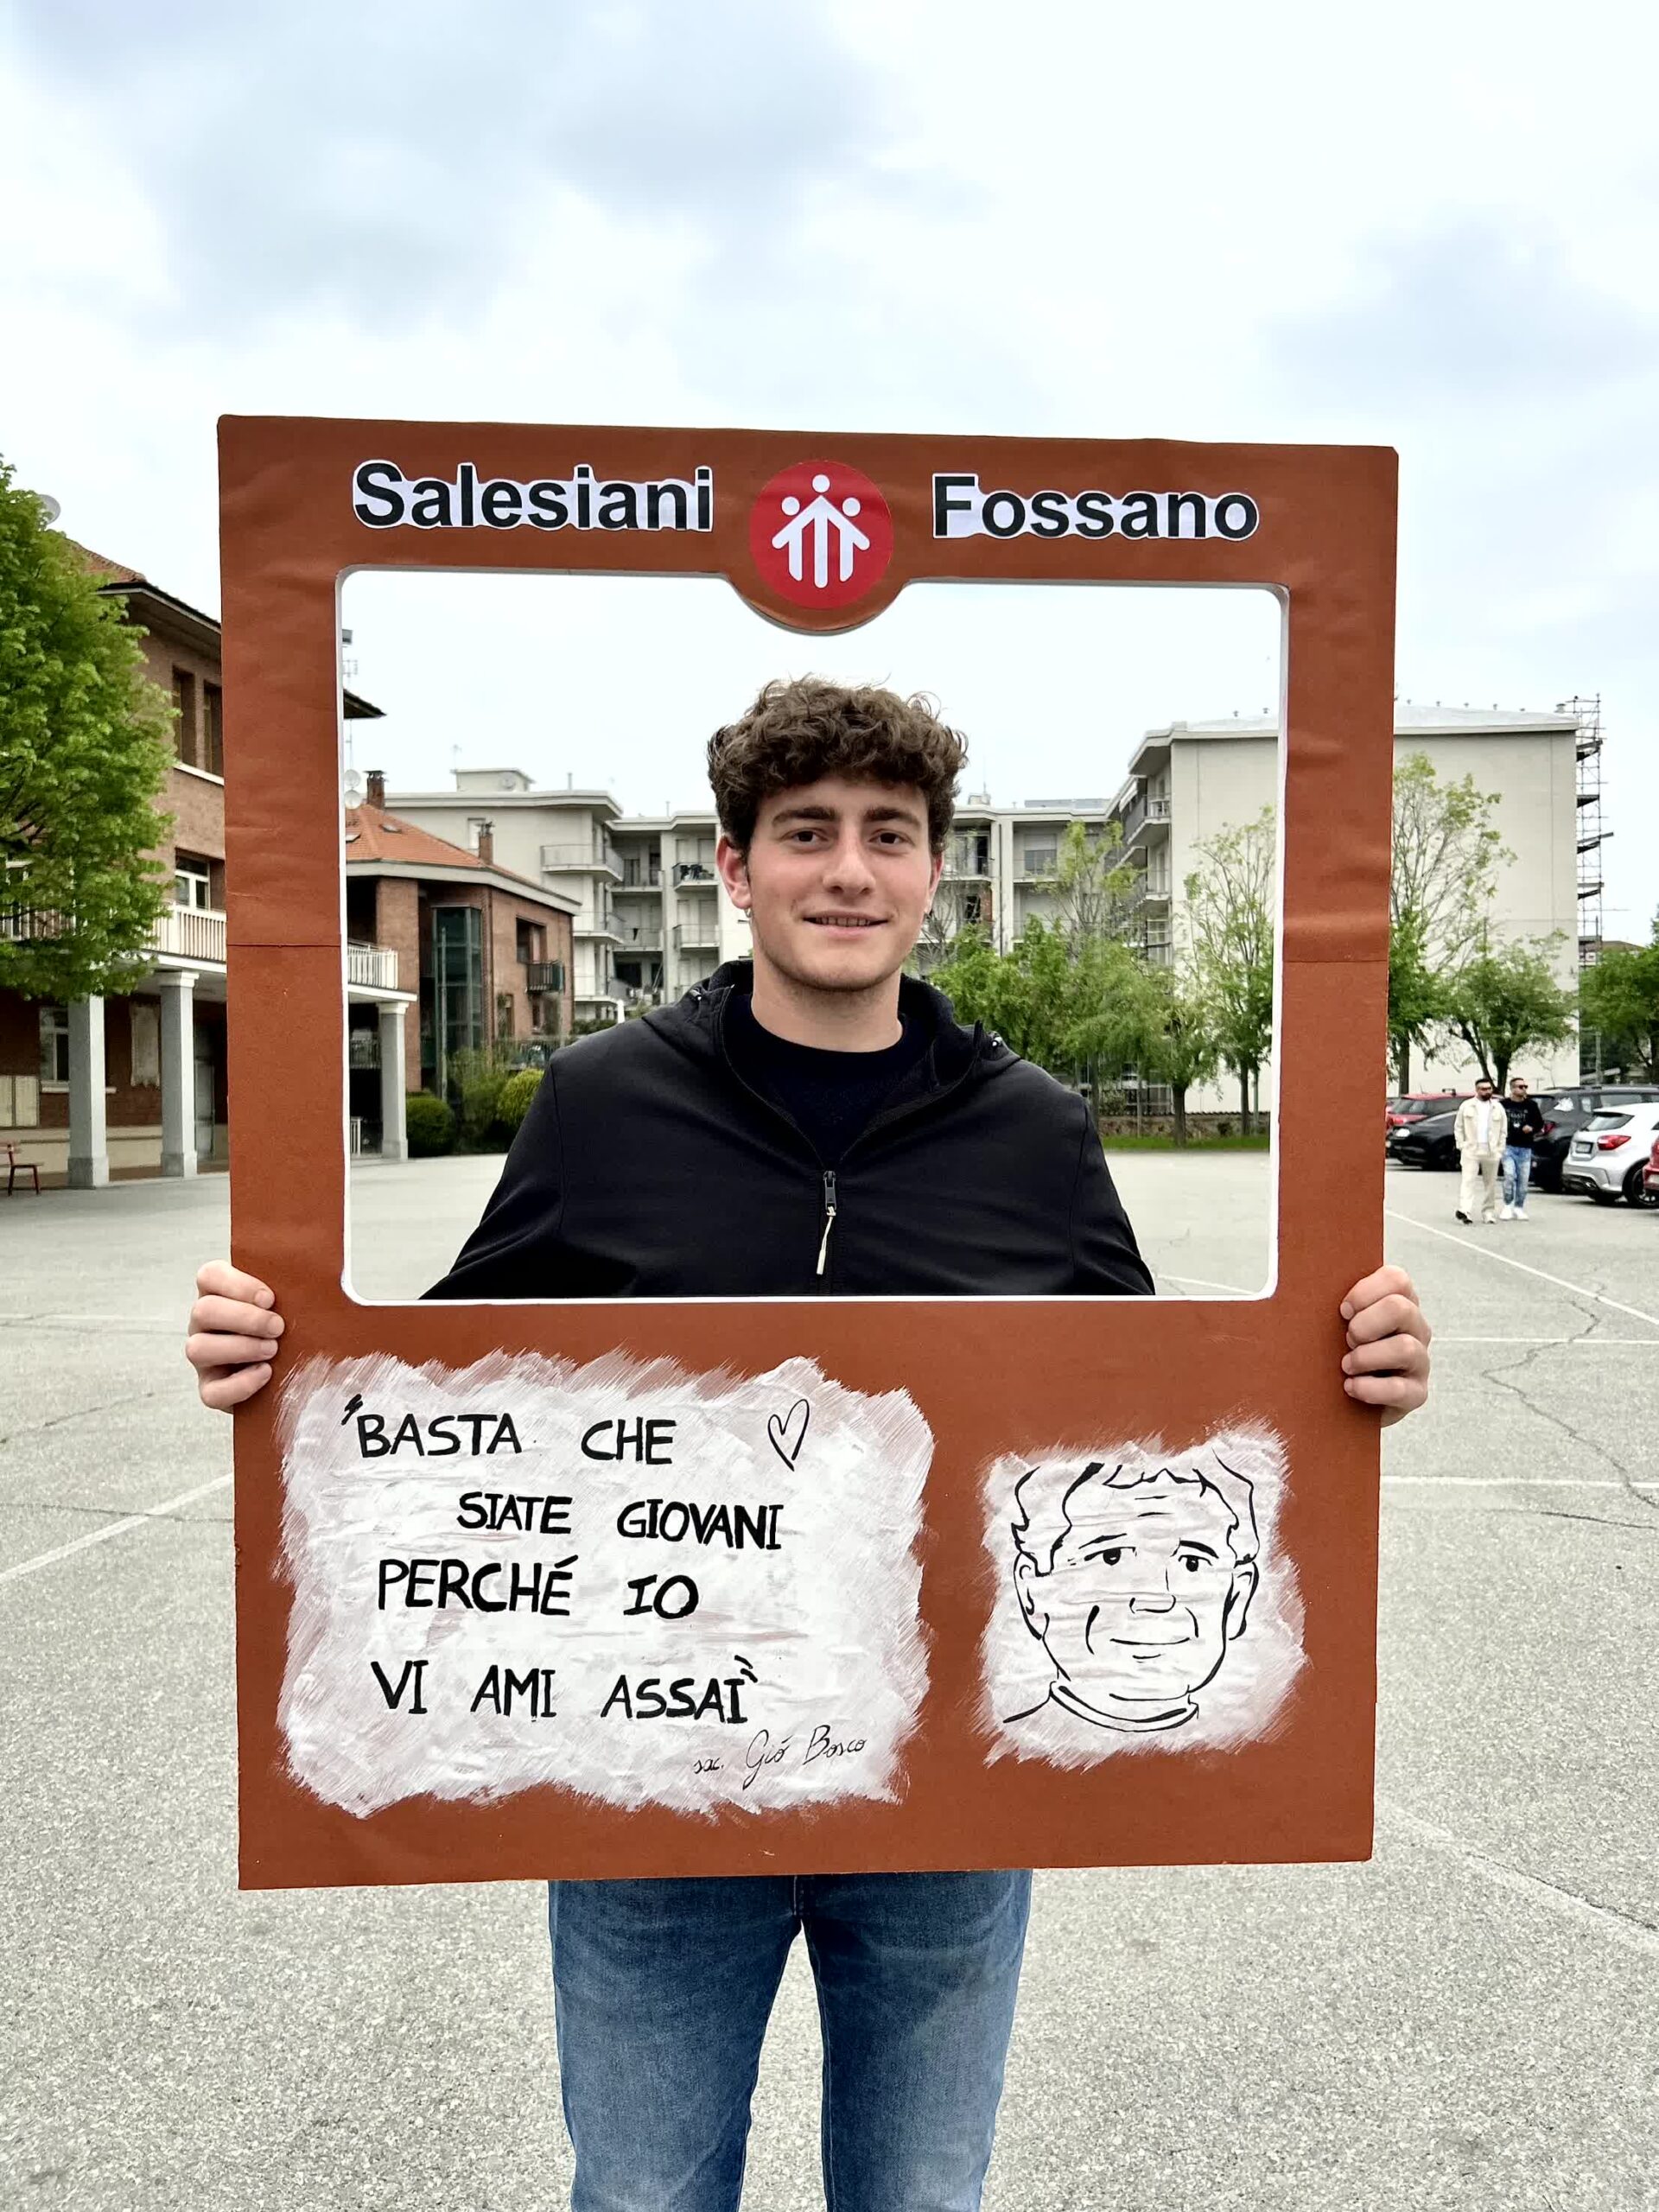 Salesiani Fossano
"BASTA CHE
SIATE GIOVANI
PERCHÉ IO
VI AMI ASSAI"
sac. Gió Bosco